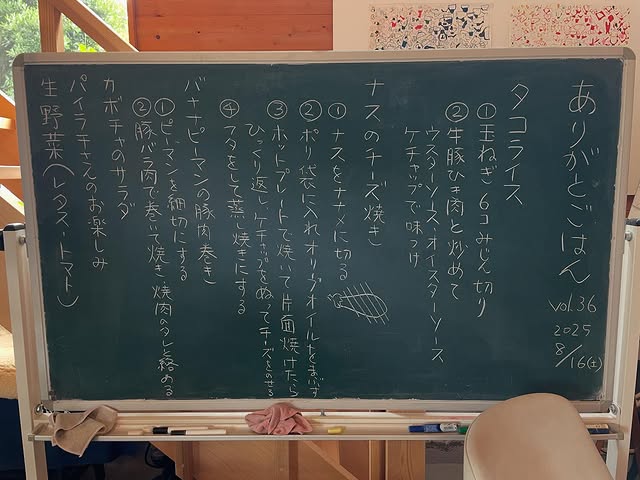 ありがとごはん
vol.36
2025
8/16(土)
タコライス
①玉ねぎ 6コみじん切り
②牛豚ひき肉と炒めて
ウスターソース、オイスターソース
ケチャップで味つけ
ナスのチーズ焼き
①ナスをナナメに切る
②ポリ袋に入れオリーブオイルをまぶす
③ホットプレートで焼いて片面焼けたら
ひっくり返し、ケチャップをぬってチーズをのせる
④フタをして蒸し焼きにする
バナナピーマンの豚肉巻き
①ピーマンを細切にする
②豚バラ肉で巻いて焼き 焼肉のタレを絡める
カボチャのサラダ
パイラ千さえのお楽しみ
生野菜(レタス・トマト)